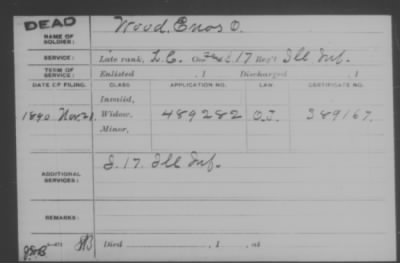 DEAD
NAME OF SOLDIER: Wood, Enos O.
SERVICE: Late rank, L.C. Co. 17 Reg't Ill Inf.
TERM OF SERVICE: Enlisted , 1 Discharged , 1
DATE OF FILING. CLASS APPLICATION NO. LAW CERTIFICATE NO.
Invalid,
1890 Nov. 21. Widow, 489282 O.I. 389167.
Minor,
ADDITIONAL SERVICES: S. 17. Ill Inf.
REMARKS:
Died , 1 , at